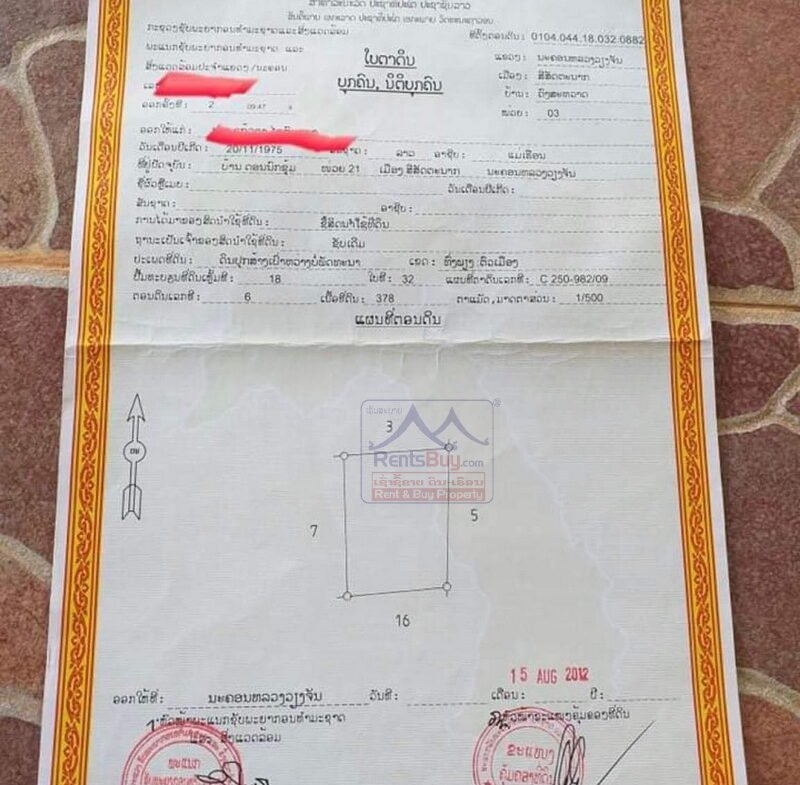 ສາທາລະນະລັດ ປະຊາທິປະໄຕ ປະຊາຊົນລາວ
ສັນຕິພາບ ເອກະລາດ ປະຊາທິປະໄຕ ເອກະພາບ ວັດທະນະຖາວອນ
ກະຊວງຊັບພະຍາກອນທຳມະຊາດແລະສິ່ງແວດລ້ອມ
ທີ່ຕັ້ງຕອນດິນ: 0104.044.18.032.0882
ພະແນກຊັບພະຍາກອນທຳມະຊາດ ແລະ
ສິ່ງແວດລ້ອມປະຈຳແຂວງ/ນະຄອນ
ໃບຕາດິນ
ບຸກຄົນ, ນິຕິບຸກຄົນ
ແຂວງ: ນະຄອນຫລວງວຽງຈັນ
ເມືອງ: ສີສັດຕະນາກ
ບ້ານ: ດົງສະຫວາດ
ໜ່ວຍ: 03
ເລ
ອອກຄັ້ງທີ: 2 09:47
ອອກໃຫ້ແກ່:
ວັນເດືອນປີເກີດ: 20/11/1975 ລາວ ອາຊີບ: ແມ່ເຮືອນ
ທີ່ຢູ່ປັດຈຸບັນ: ບ້ານ ດອນນົກຂຸ້ມ ໜ່ວຍ 21 ເມືອງ ສີສັດຕະນາກ ນະຄອນຫລວງວຽງຈັນ
ຊື່ຜົວຫຼືເມຍ: ວັນເດືອນປີເກີດ:
ສັນຊາດ: ອາຊີບ:
ການໄດ້ມາຂອງສິດນຳໃຊ້ທີ່ດິນ: ຊື້ສິດນຳໃຊ້ທີ່ດິນ
ຖານະເປັນເຈົ້າຂອງສິດນຳໃຊ້ທີ່ດິນ: ຊັບເດີມ
ປະເພດທີ່ດິນ: ດິນປຸກສ້າງເປົ່າຫວ່າງບໍ່ພັດທະນາ ເຂດ: ທົ່ງພຽງ ຕົວເມືອງ
ປຶ້ມທະບຽນທີ່ດິນເຫຼັ້ມທີ: 18 ໃບທີ: 32 ແຜນທີ່ຕາດິນເລກທີ: C 250-982/09
ຕອນດິນເລກທີ: 6 ເນື້ອທີ່ດິນ: 378 ຕາແມັດ, ມາດຕາສ່ວນ: 1/500
ແຜນທີ່ຕອນດິນ
3
RentsBuy.com
ເຊົ່າຊື້ຂາຍ ດິນ-ເຮືອນ
Rent & Buy Property
7
5
16
15 AUG 2012
ອອກໃຫ້ທີ່: ນະຄອນຫລວງວຽງຈັນ ວັນທີ: ເດືອນ: ປີ:
ຫົວໜ້າພະແນກຊັບພະຍາກອນທຳມະຊາດ
ແລະສິ່ງແວດລ້ອມ
ຫົວໜ້າຂະແໜງຄຸ້ມຄອງທີ່ດິນ
ພະແນກ
ຂະແໜງ
ຄຸ້ມຄອງທີ່ດິນ